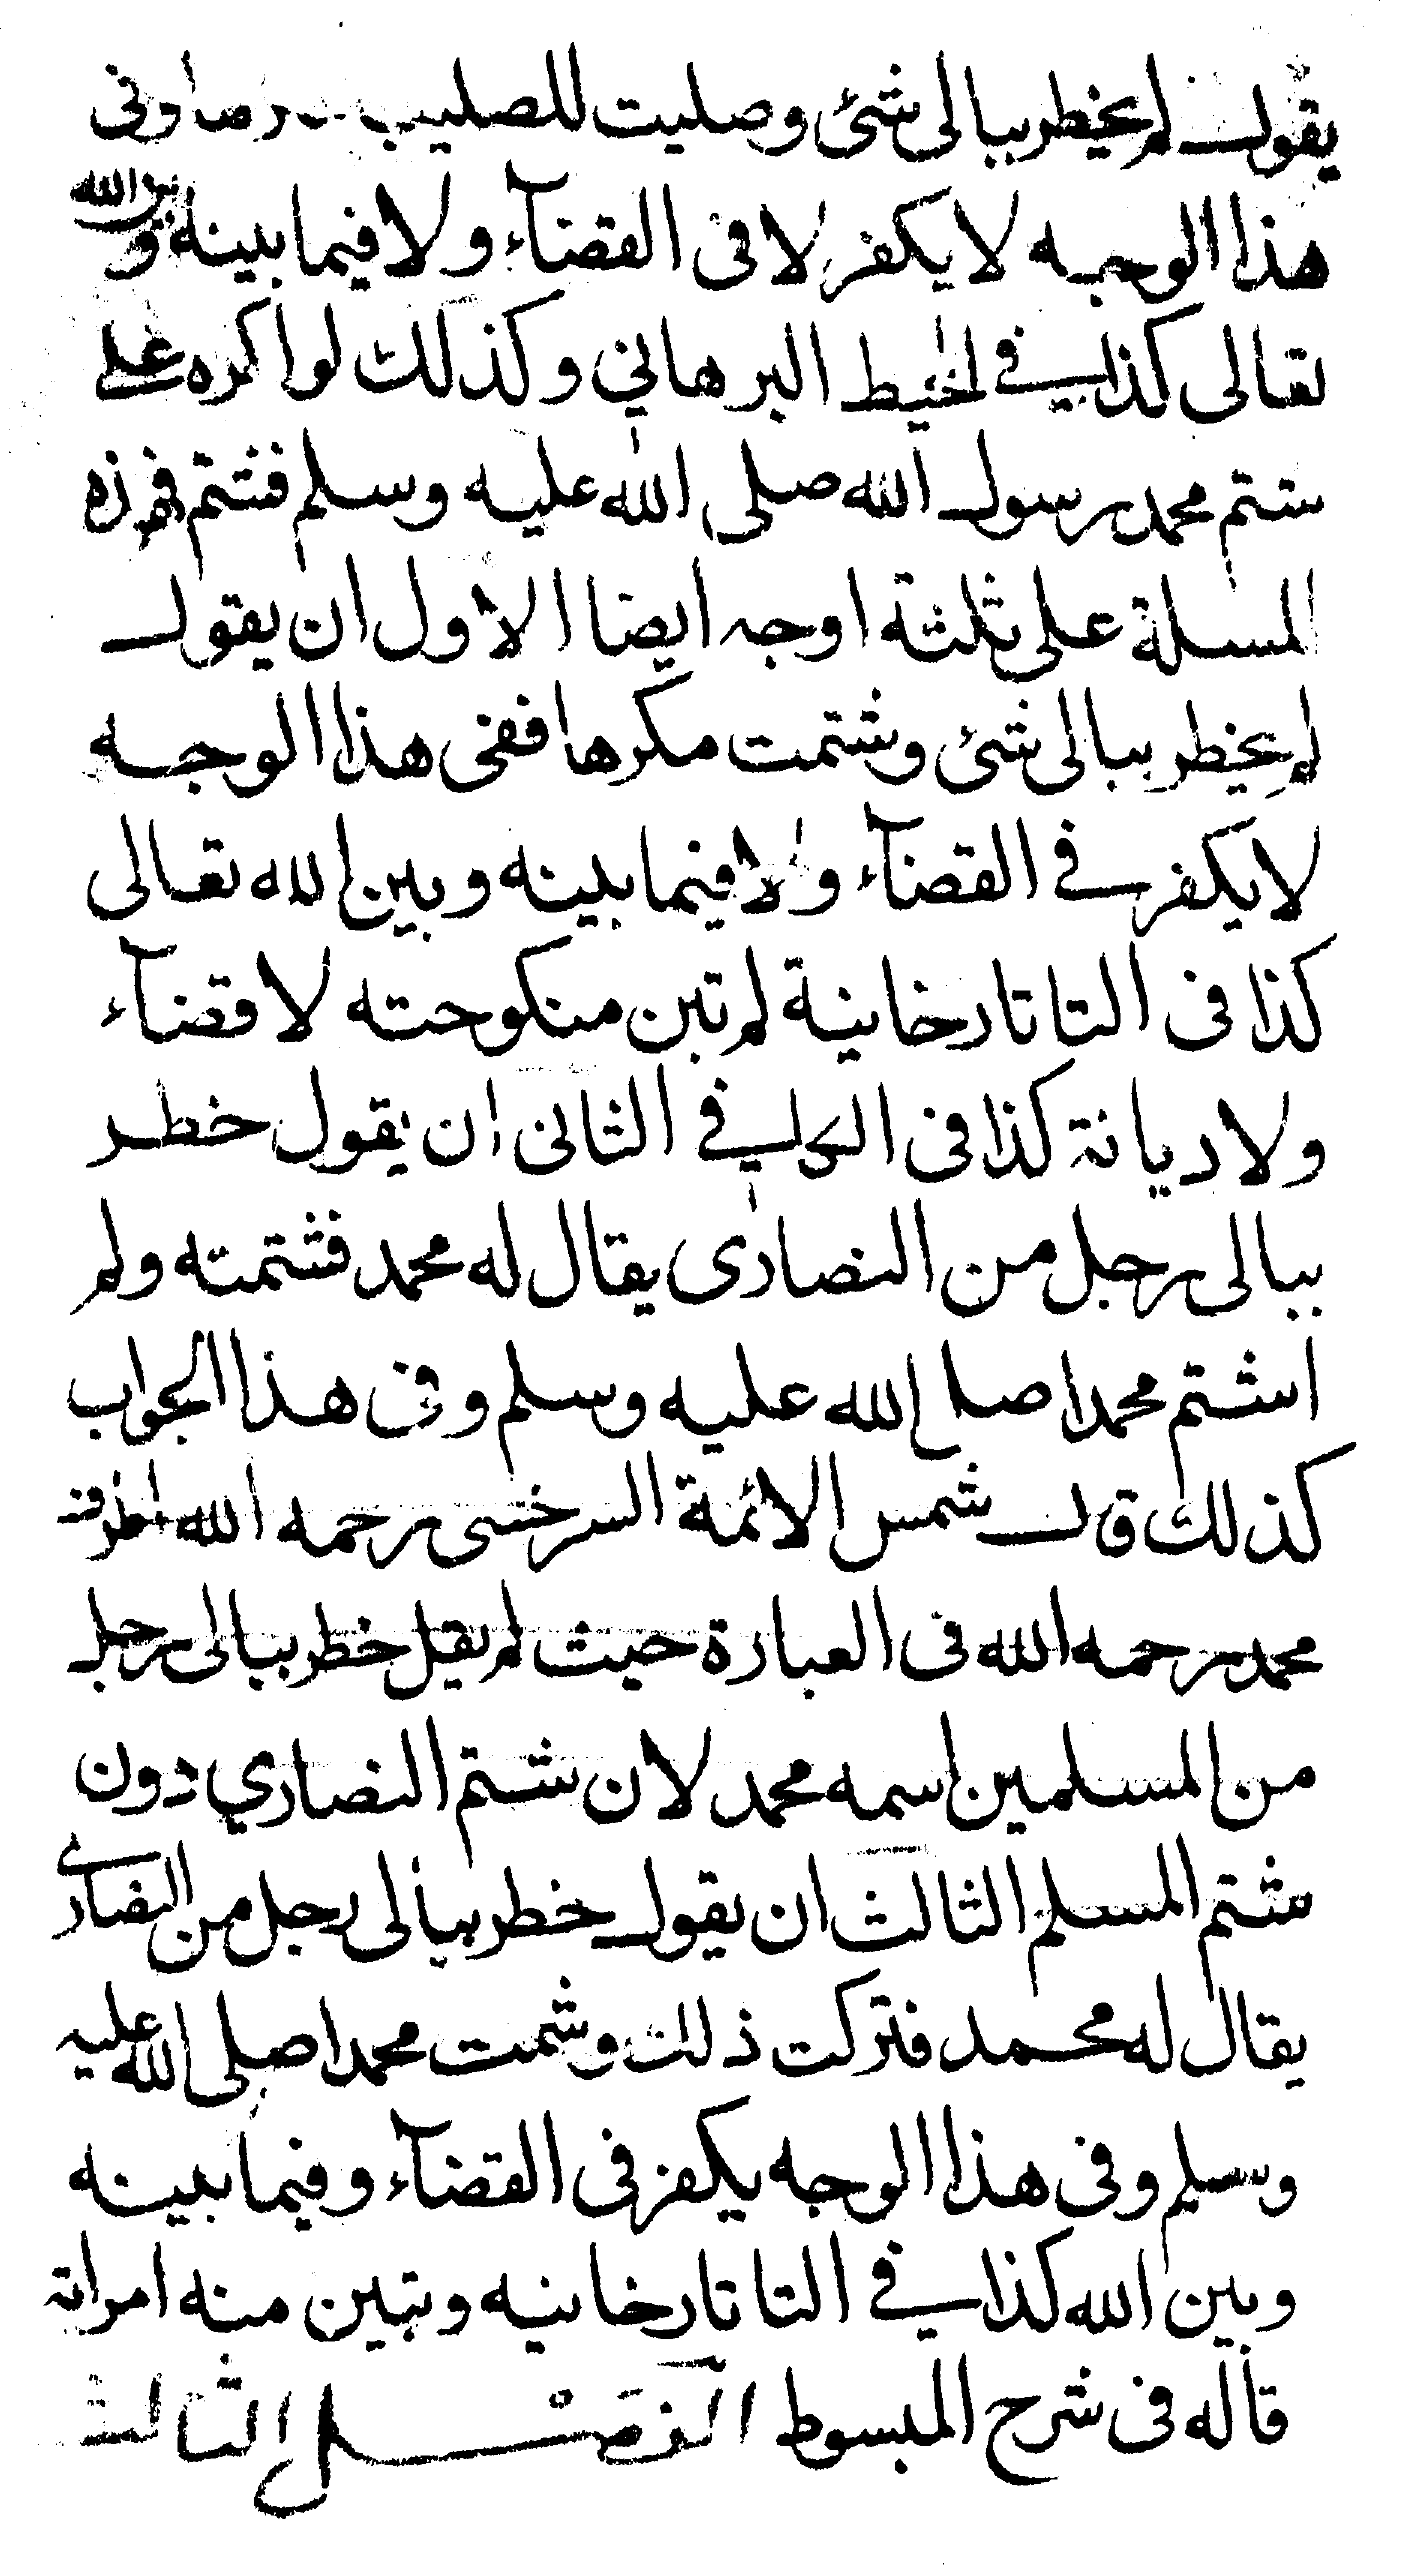 يقول لم يخطر ببالى شئ وصليت للصليب وفى
هذا الوجه لا يكفر لا فى القضآء ولا فيما بينه وبين الله
تعالى كذا فى المحيط البرهاني وكذلك لو اكره على
شتم محمد رسول الله صلى الله عليه وسلم فشتم فهذه
المسلة على ثلثة اوجه ايضا الاول ان يقول
لم يخطر ببالى شئ وشتمت مكرها ففى هذا الوجه
لا يكفر فى القضآء ولا فيما بينه وبين الله تعالى
كذا فى التاتارخانية لم تبن منكوحته لا قضآء
ولا ديانة كذا فى الثانى ان يقول خطر
ببالى رجل من النصارى يقال له محمد فشتمته ولم
اشتم محمدا صلى الله عليه وسلم وفى هذا الجواب
كذلك قال شمس الائمة السرخسى رحمه الله
محمد رحمه الله فى العبارة حيث لم يقل خطر ببالى رجل
من المسلمين اسمه محمد لان شتم النصاري دون
شتم المسلم الثالث ان يقول خطر ببالى رجل من النصارى
يقال له محمد فتركت ذلك وشتمت محمدا صلى الله عليه
وسلم وفى هذا الوجه يكفر فى القضآء وفيما بينه
وبين الله كذا فى التاتارخانيه وتبين منه امراته
قاله فى شرح المبسوط الفصل الثالث